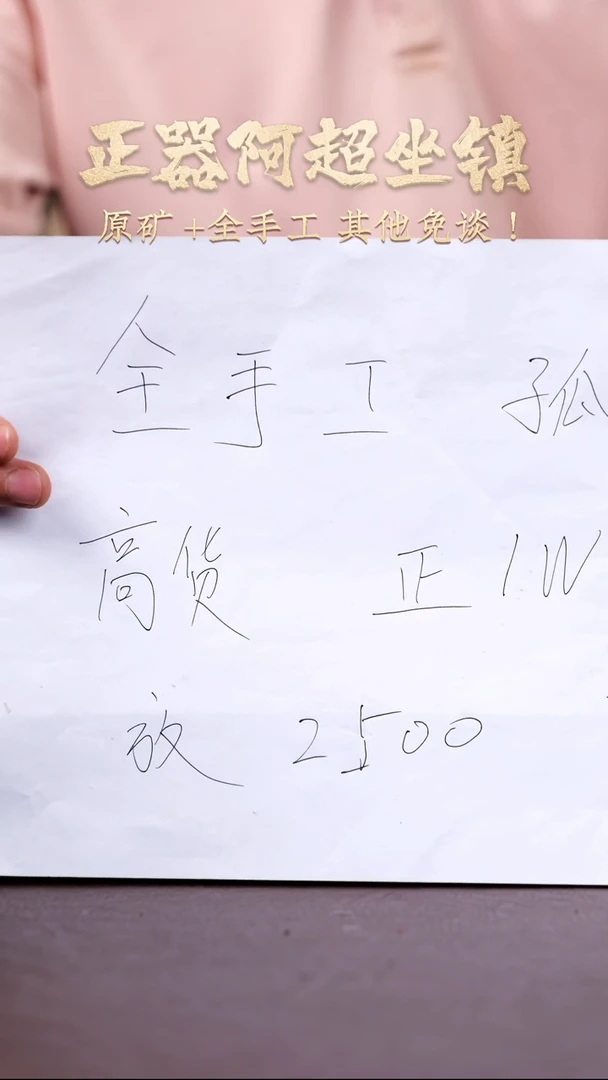 正器阿超坐镇
原矿+全手工 其他免谈！
全手工 孤
高货 正1W
放 2500